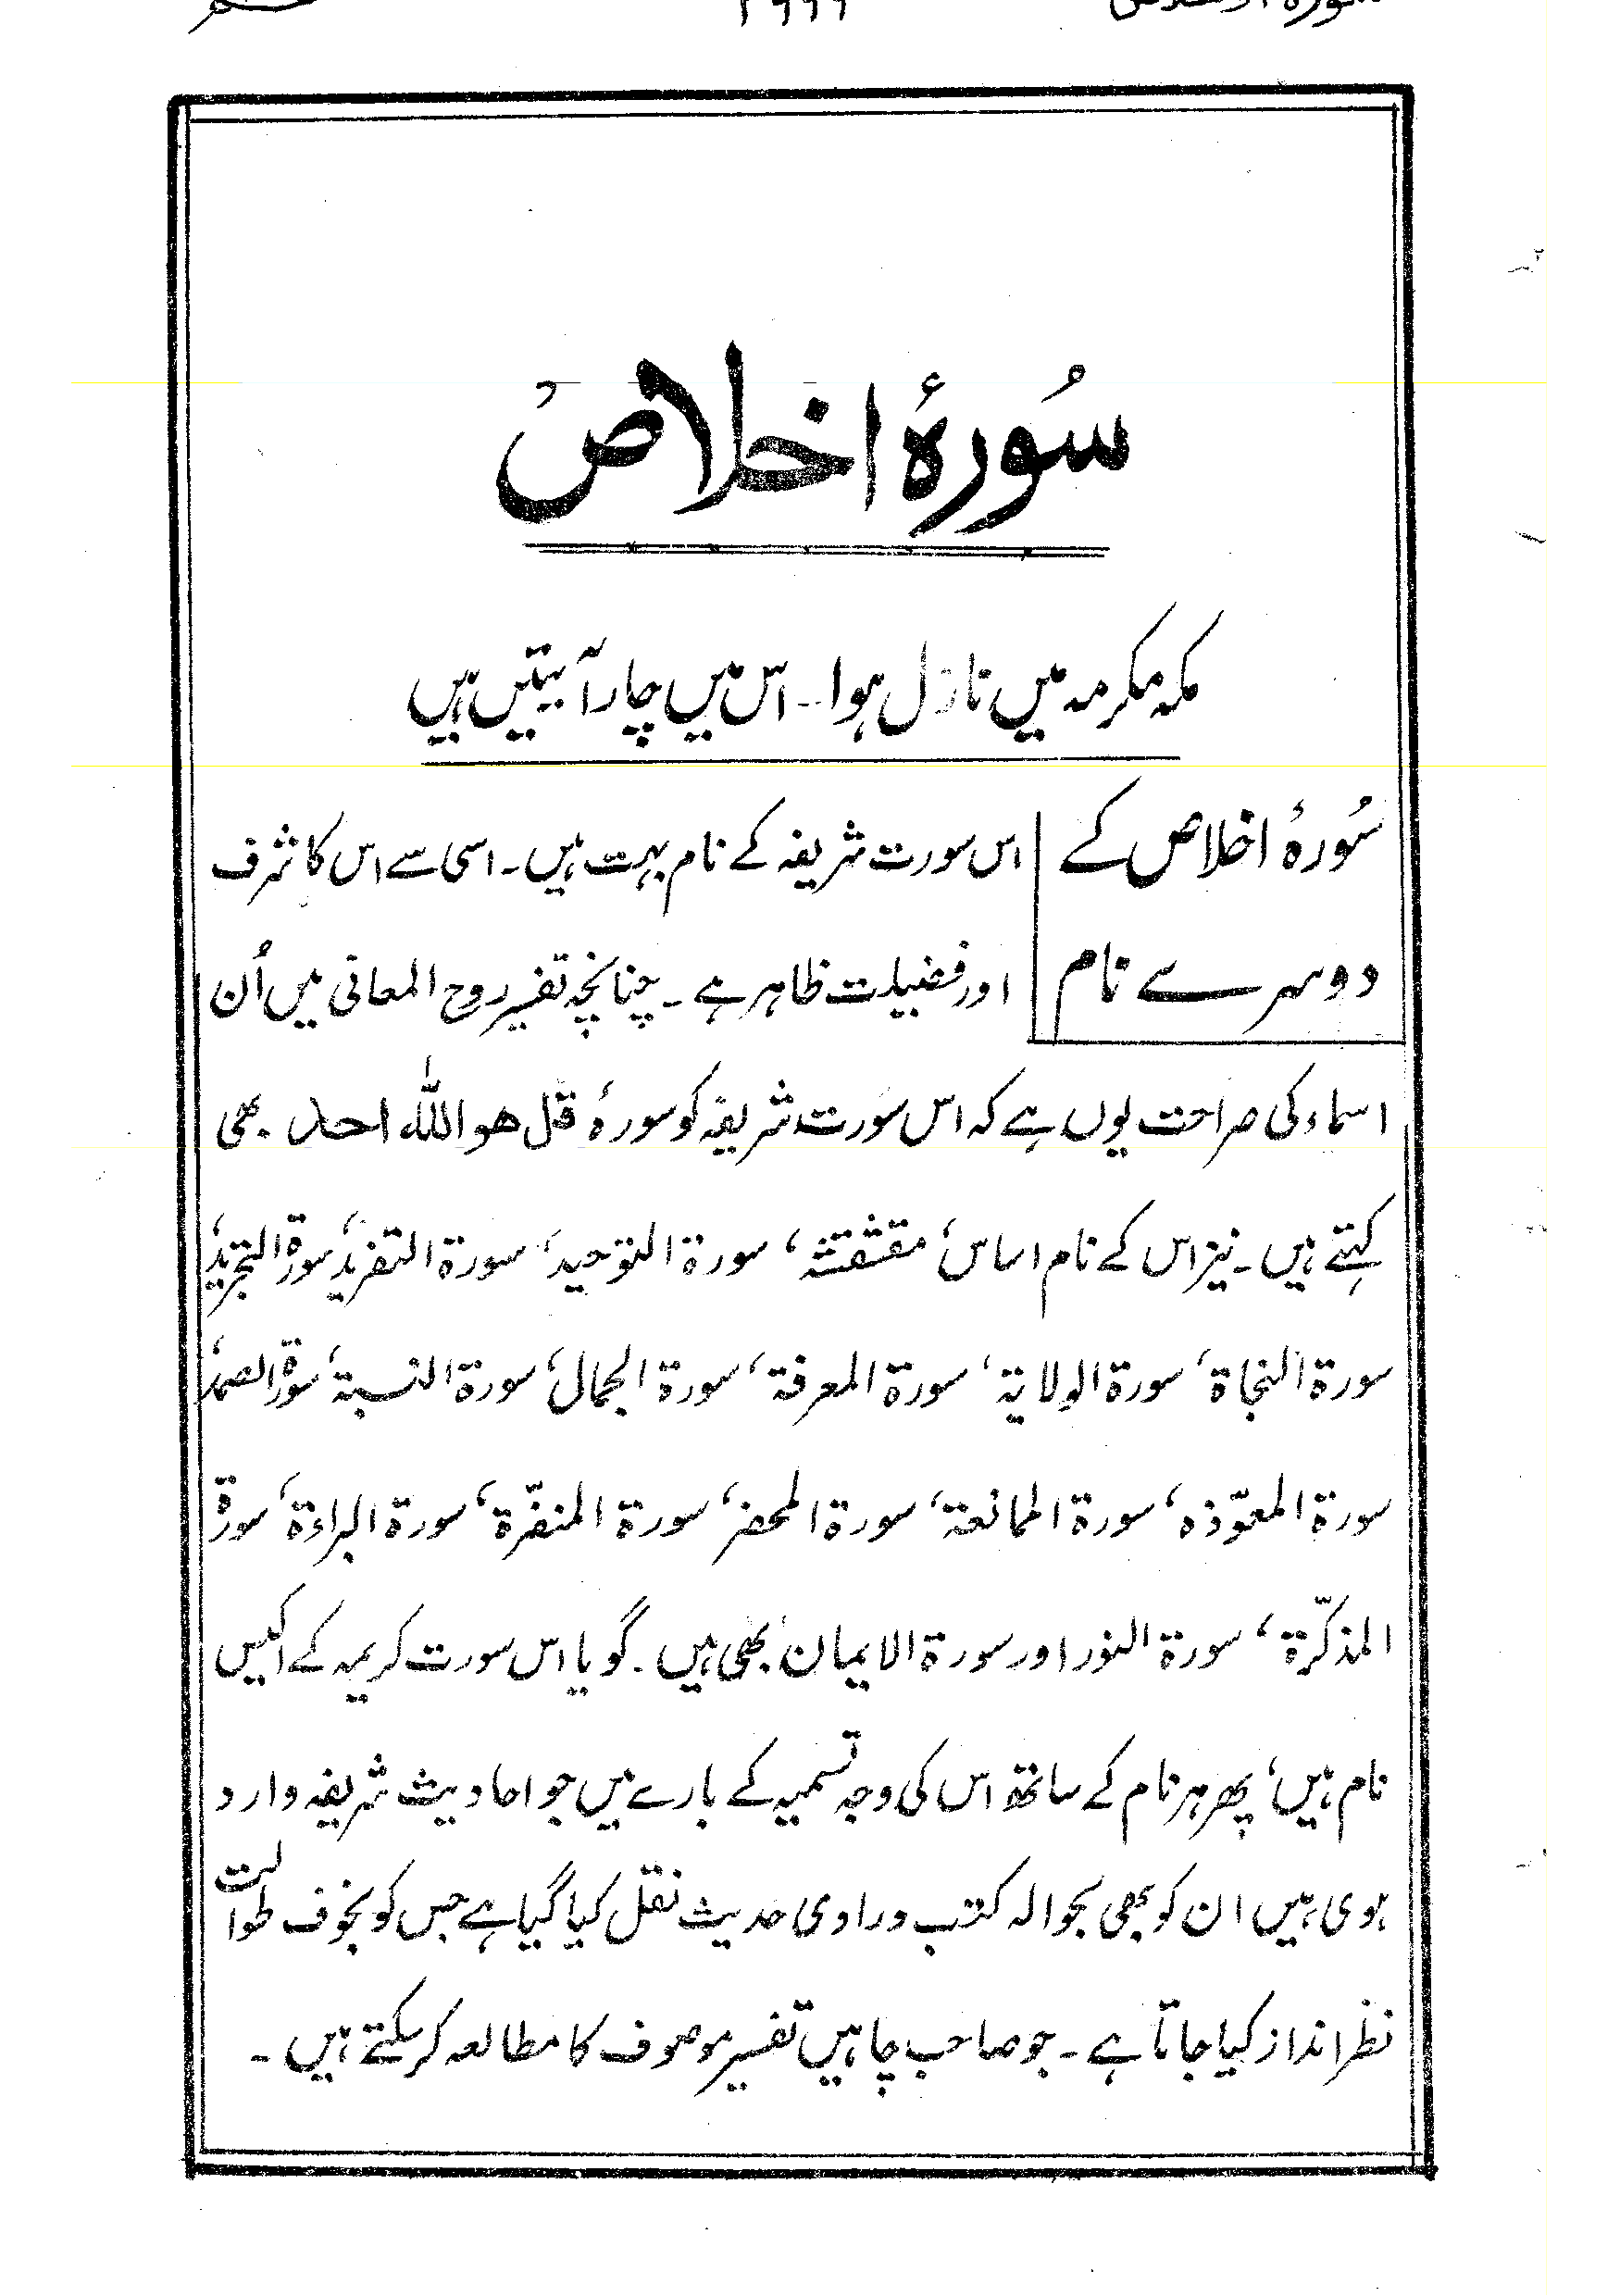 سُورۂ اخلاص
مکہ مکرمہ میں نازل ہوا۔ اس میں چار آیتیں ہیں
سُورۂ اخلاص کے
دوسرے نام
اس سورت شریفہ کے نام بہت ہیں۔ اسی سے اس کا شرف
اور فضیلت ظاہر ہے۔ چنانچہ تفسیر روح المعانی میں اُن
اسماء کی صراحت یوں ہے کہ اس سورت شریفہ کو سورۂ قل ھو اللہ احد بھی
کہتے ہیں۔ نیز اس کے نام اساس، مقشقشہ، سورۃ التوحید، سورۃ التفرید، سورۃ التجرید،
سورۃ النجاۃ، سورۃ الولایۃ، سورۃ المعرفۃ، سورۃ الجمال، سورۃ النسبۃ، سورۃ الصمد،
سورۃ المعوّذہ، سورۃ الممانعۃ، سورۃ المحضر، سورۃ المنفّرۃ، سورۃ البراءۃ، سورۃ
المذکّرۃ، سورۃ النور اور سورۃ الایمان بھی ہیں۔ گویا اس سورت کریمہ کے اکیس
نام ہیں، پھر ہر نام کے ساتھ اس کی وجہ تسمیہ کے بارے میں جو احادیث شریفہ وارد
ہوی ہیں ان کو بھی بحوالہ کتب و راوی حدیث نقل کیا گیا ہے جس کو بخوف طوالت
نظر انداز کیا جاتا ہے۔ جو صاحب چاہیں تفسیر موصوف کا مطالعہ کر سکتے ہیں۔